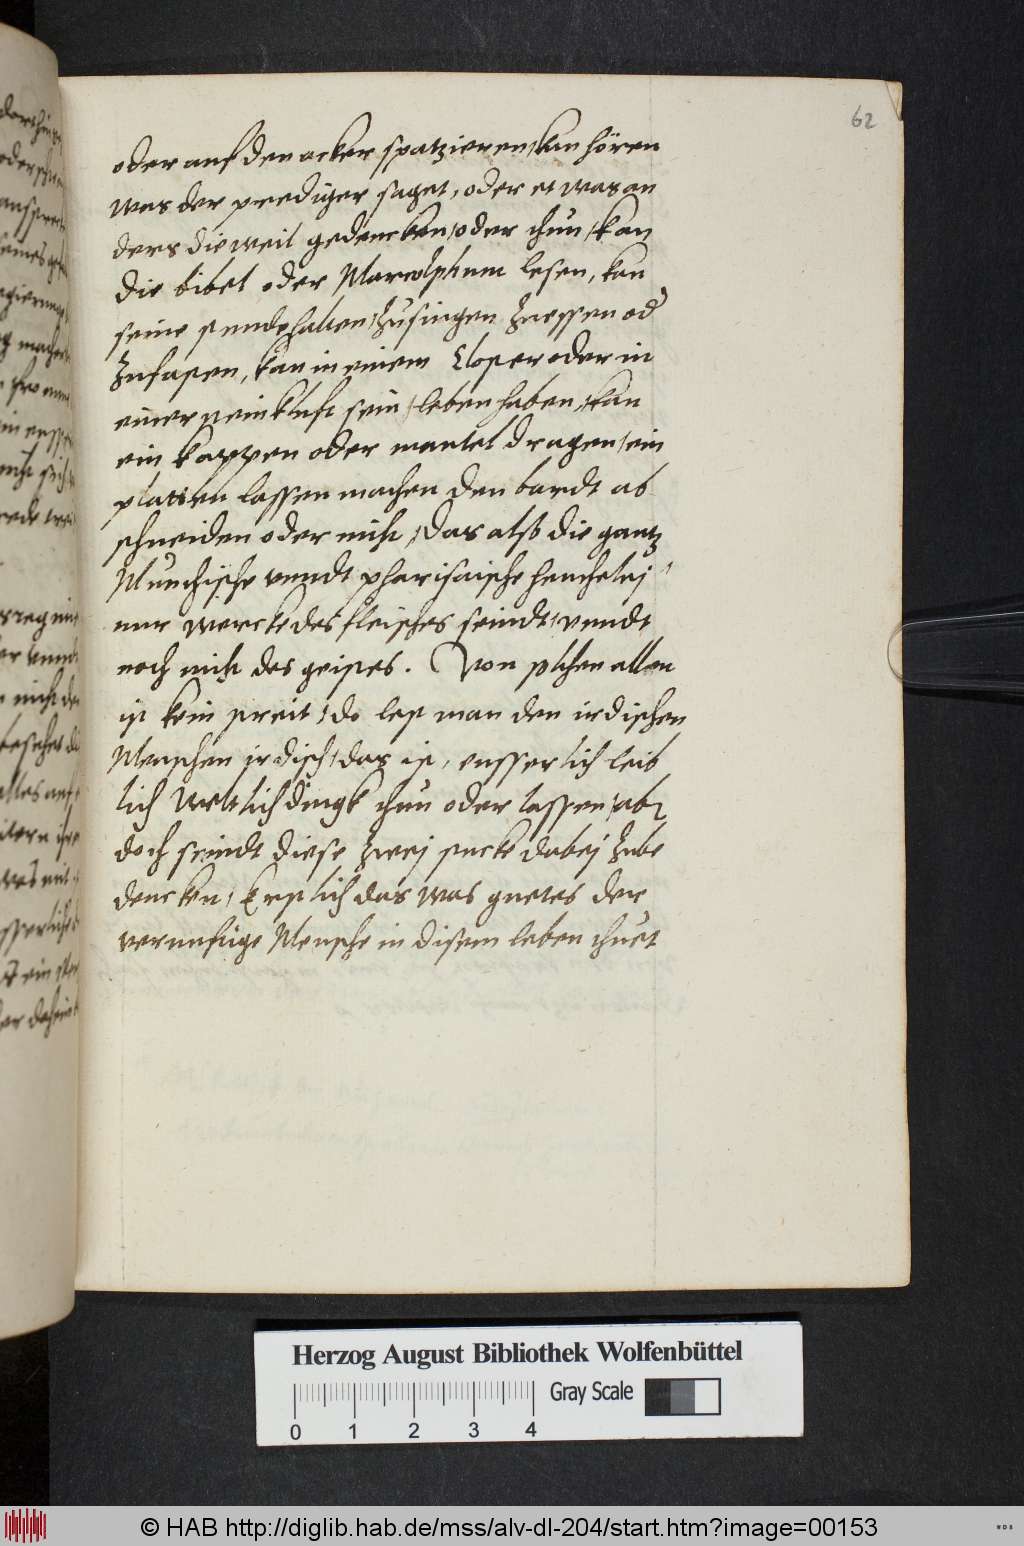 62
oder auf den acker spatzieren, kan hören
was der prediger saget, oder etwas an
ders die weil gedencken, oder thun, kan
die bibel oder Marcolphum lesen, kan
seine stende halten, zu singen zu essen od
zu fasten, kan in einem Closter oder in
einer steinkluft sein, leben haben, kan
ein kappen oder mantel dragen, ein
platten lassen machen den bardt ab
schneiden oder nicht, das also die gantz
Munchische vnndt pharisaische heuchelej
nur wercke des fleisches seindt, vnndt
noch nicht des geistes. Von solchen allen
ist kein streit, do lest man den irdischen
Menschen irdisch, das ist, eusserlich leib
lich Weltlich dingk thun oder lassen, abr
doch seindt diese zwej stucke dabej zube
dencken, Erstlich das was guetes der
vernunftige Mensche in disem leben thuet
Herzog August Bibliothek Wolfenbüttel
Gray Scale
0 1 2 3 4
© HAB http://diglib.hab.de/mss/alv-dl-204/start.htm?image=00153